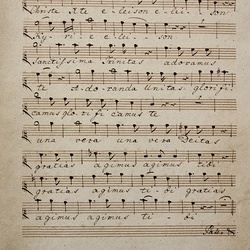 Christe e le ison e lei son
Ky ri e e lei son
Sanctissima Trinitas adoramus
te Adoranda Unitas glorifi
camus glorifi camus te
una vera una vera Deitas
gratias agimus agimus tibi
gratias agimus agimus tibi gratias
agimus agimus ti bi